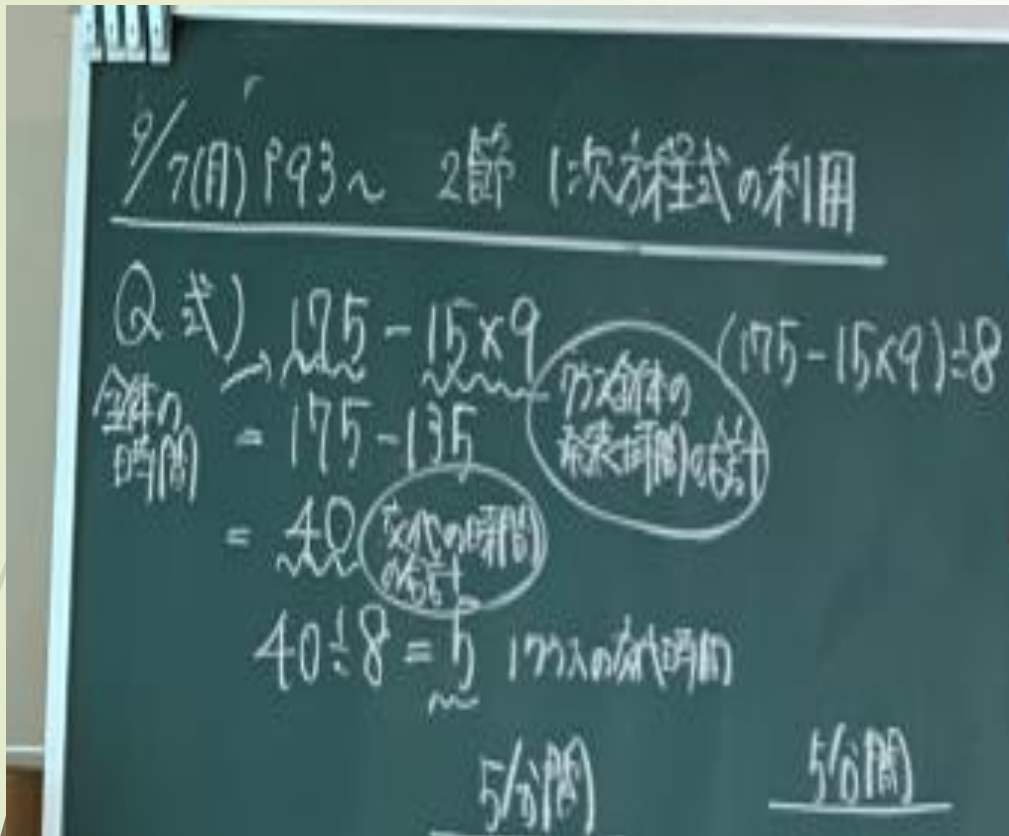 9/7(月) P93～ 2節 1次方程式の利用
Q 式) 175-15×9
(175-15×9)÷8
全体の
時間
クラス全体の
の合計
= 175-135
= 40
交代の時間
の合計
40÷8=5 1クラスの交代時間
5分間
5分間